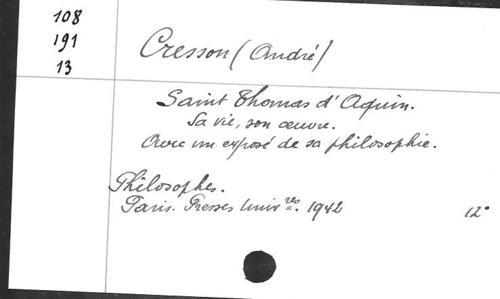 108
191
13
Cresson (André)
Saint Thomas d'Aquin.
Sa vie, son œuvre.
Avec un exposé de sa philosophie.
Philosophes.
Paris. Presses Univ.res. 1942 12°